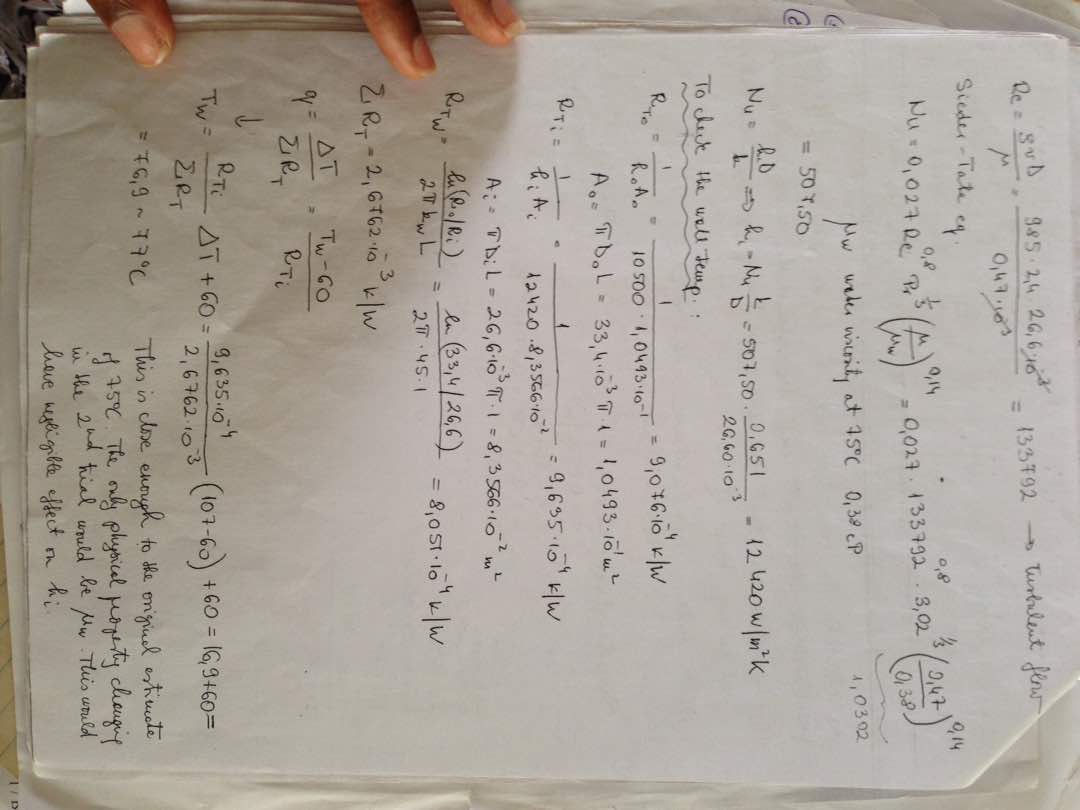 Re = ρvD/μ = 985 · 2,4 · 26,6·10⁻³ / 0,47·10⁻³ = 133792 → turbulent flow
Sieder-Tate eq.
Nu = 0,027 Re^0,8 Pr^1/3 (μ/μw)^0,14 = 0,027 · 133792^0,8 · 3,02^1/3 (0,47/0,38)^0,14
1,0302
μw water viscosity at 75°C 0,38 cP
= 507,50
Nu = hiD/k ⇒ hi = Nu k/D = 507,50 · 0,651 / 26,60·10⁻³ = 12420 W/m²K
To check the wall temp.:
RTo = 1/hoAo = 1 / 10500 · 1,0493·10⁻¹ = 9,076·10⁻⁴ K/W
Ao = πDoL = 33,4·10⁻³ π·1 = 1,0493·10⁻¹ m²
RTi = 1/hiAi = 1 / 12420 · 8,3566·10⁻² = 9,635·10⁻⁴ K/W
Ai = πDiL = 26,6·10⁻³ π·1 = 8,3566·10⁻² m²
RTw = ln(Ro/Ri) / 2πkwL = ln(33,4/26,6) / 2π·45·1 = 8,051·10⁻⁴ K/W
ΣRT = 2,6762·10⁻³ K/W
q = ΔT/ΣRT = Tw-60/RTi
↓
Tw = RTi/ΣRT ΔT + 60 = 9,635·10⁻⁴ / 2,6762·10⁻³ (107-60) + 60 = 16,9+60 =
= 76,9 ~ 77°C
This is close enough to the original estimate
of 75°C. The only physical property changing
in the 2nd trial would be μw. This would
have negligible effect on hi.